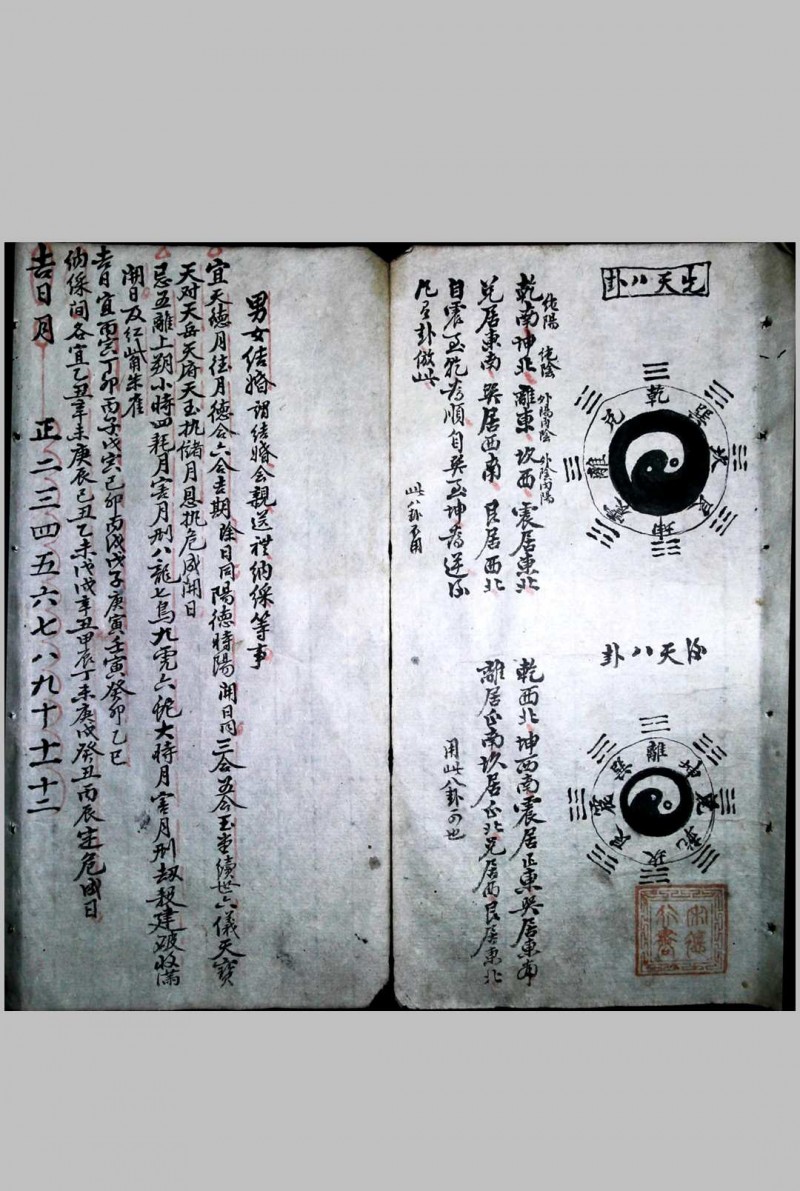 先天八卦
乾
巽
坎
艮
坤
震
離
兌
純陽 純陰 外陽內陰 外陰內陽
乾南坤北離東坎西震居東北
兌居東南巽居西南艮居西北
自震至乾為順自巽至坤為逆后
凡各卦倣此
此八卦不用
后天八卦
離
坤
兌
乾
坎
艮
震
巽
乾西北坤西南震居正東巽居東南
離居正南坎居正北兌居西艮居東北
用此八卦可也
男女結婚 謂結婚會親送禮納綵等事
宜天德月德月德合六合吉期 除日同陽德時陽 開日同三合五合玉堂續世六儀天寶
天对天岳天府天玉執儲月恩執危成開日
忌五離上朔小時四耗月害月刑八龍七鳥九虎六蛇大時月害月刑劫殺建破收滿
閉日及紅嘴朱雀
吉日宜丙寅丁卯丙子戊寅己卯丙戌戊子庚寅壬寅癸卯乙巳
納綵問名宜乙丑辛未庚辰己丑乙未戊戌辛丑甲辰丁未庚戌癸丑丙辰定危成日
吉日月 正二三四五六七八九十十一十二